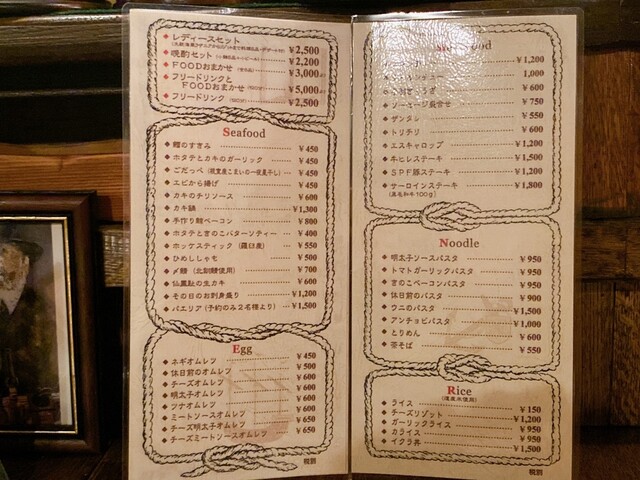 レディースセット ¥2,500
晩酌セット ¥2,200
FOODおまかせ ¥3,000
フリードリンクと
FOODおまかせ ¥5,000
フリードリンク ¥2,500
Seafood
鱈のすきみ ¥450
ホタテとカキのガーリック ¥450
ごだっぺ ¥450
エビから揚げ ¥450
カキのチリソース ¥600
カキ鍋 ¥1,300
手作り鮭ベーコン ¥800
ホタテときのこバターソティー ¥400
ホッケスティック(羅臼産) ¥550
ひめししゃも ¥500
〆鯖 ¥700
仙鳳趾の生カキ ¥600
その日のお刺身盛り ¥1,200
パエリア(予約のみ2名様より) ¥1,500
Egg
ネギオムレツ ¥450
休日前のオムレツ ¥500
チーズオムレツ ¥600
明太子オムレツ ¥600
ツナオムレツ ¥600
ミートソースオムレツ ¥600
チーズ明太子オムレツ ¥650
チーズミートソースオムレツ ¥650
税別
¥1,200
1,000
¥600
ソーセージ盛合せ ¥750
ザンタレ ¥550
トリチリ ¥600
エスキャロップ ¥1,200
牛ヒレステーキ ¥1,500
SPF豚ステーキ ¥1,200
サーロインステーキ ¥1,800
(黒毛和牛100g)
Noodle
明太子ソースパスタ ¥950
トマトガーリックパスタ ¥950
きのこベーコンパスタ ¥950
休日前のパスタ ¥900
ウニのパスタ ¥1,500
アンチョビパスタ ¥1,000
とりめん ¥600
茶そば ¥550
Rice
(道産米使用)
ライス ¥150
チーズリゾット ¥1,200
ガーリックライス ¥950
カライス ¥950
イクラ丼 ¥1,500
税別